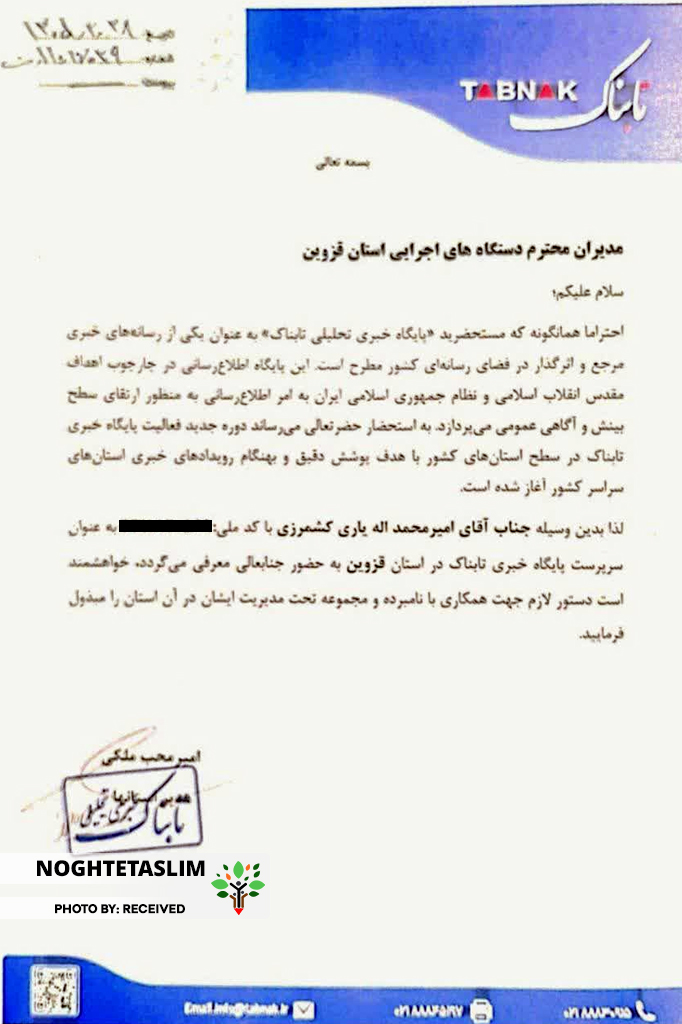 تاریخ:
شماره:
پیوست:
TABNAK
تابناک
بسمه تعالی
مدیران محترم دستگاه های اجرایی استان قزوین
سلام علیکم؛
احتراما همانگونه که مستحضرید «پایگاه خبری تحلیلی تابناک» به عنوان یکی از رسانه‌های خبری
مرجع و اثرگذار در فضای رسانه‌ای کشور مطرح است. این پایگاه اطلاع‌رسانی در چارچوب اهداف
مقدس انقلاب اسلامی و نظام جمهوری اسلامی ایران به امر اطلاع‌رسانی به منظور ارتقای سطح
بینش و آگاهی عمومی می‌پردازد. به استحضار حضرتعالی می‌رساند دوره جدید فعالیت پایگاه خبری
تابناک در سطح استان‌های کشور با هدف پوشش دقیق و بهنگام رویدادهای خبری استان‌های
سراسر کشور آغاز شده است.
لذا بدین وسیله جناب آقای امیرمحمد اله یاری کشمرزی با کد ملی: به عنوان
سرپرست پایگاه خبری تابناک در استان قزوین به حضور جنابعالی معرفی می‌گردد، خواهشمند
است دستور لازم جهت همکاری با نامبرده و مجموعه تحت مدیریت ایشان در آن استان را مبذول
فرمایید.
امیر محب ملکی
مدیر استانها
خبری تحلیلی
تابناک
NOGHTETASLIM
PHOTO BY: RECEIVED
Email.info@tabnak.ir